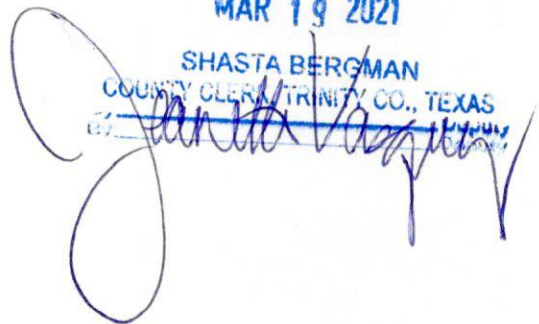 MAR 19 2021
SHASTA BERGMAN
COUNTY CLERK, TRINITY CO., TEXAS
BY Jeanette Vazquez Deputy